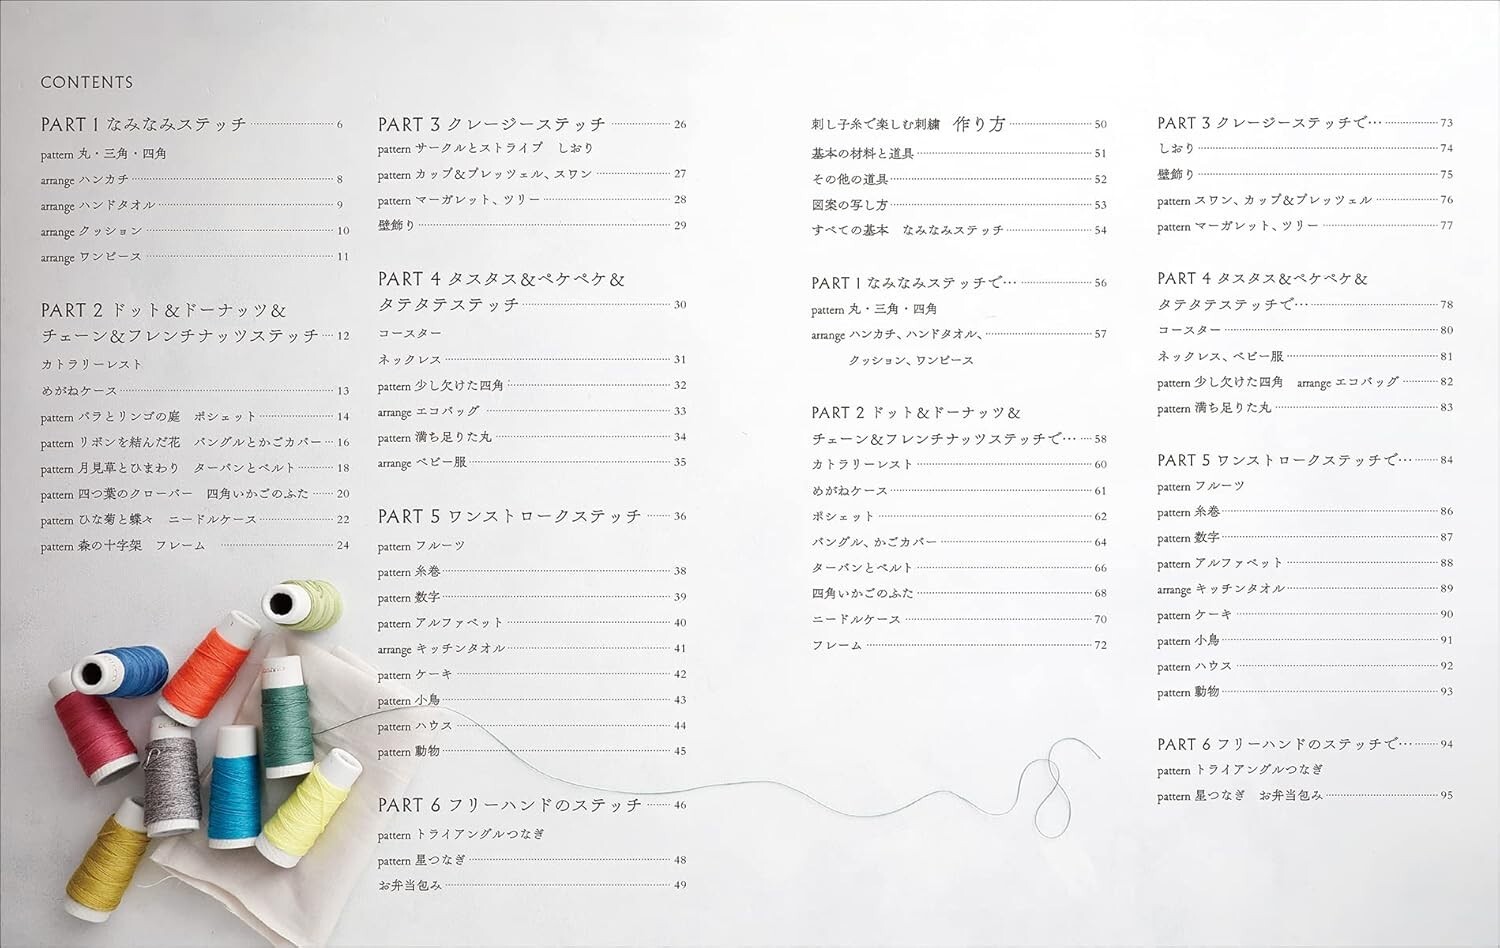 CONTENTS
PART 1 なみなみステッチ 6
pattern 丸・三角・四角
arrange ハンカチ 8
arrange ハンドタオル 9
arrange クッション 10
arrange ワンピース 11
PART 2 ドット＆ドーナッツ＆
チェーン＆フレンチナッツステッチ 12
カトラリーレスト
めがねケース 13
pattern バラとリンゴの庭　ポシェット 14
pattern リボンを結んだ花　バングルとかごカバー 16
pattern 月見草とひまわり　ターバンとベルト 18
pattern 四つ葉のクローバー　四角いかごのふた 20
pattern ひな菊と蝶々　ニードルケース 22
pattern 森の十字架　フレーム 24
PART 3 クレージーステッチ 26
pattern サークルとストライプ　しおり
pattern カップ＆プレッツェル、スワン 27
pattern マーガレット、ツリー 28
壁飾り 29
PART 4 タスタス＆ペケペケ＆
タテタテステッチ 30
コースター
ネックレス 31
pattern 少し欠けた四角 32
arrange エコバッグ 33
pattern 満ち足りた丸 34
arrange ベビー服 35
PART 5 ワンストロークステッチ 36
pattern フルーツ
pattern 糸巻 38
pattern 数字 39
pattern アルファベット 40
arrange キッチンタオル 41
pattern ケーキ 42
pattern 小鳥 43
pattern ハウス 44
pattern 動物 45
PART 6 フリーハンドのステッチ 46
pattern トライアングルつなぎ
pattern 星つなぎ 48
お弁当包み 49
刺し子糸で楽しむ刺繍　作り方 50
基本の材料と道具 51
その他の道具 52
図案の写し方 53
すべての基本　なみなみステッチ 54
PART 1 なみなみステッチで… 56
pattern 丸・三角・四角
arrange ハンカチ、ハンドタオル、 57
クッション、ワンピース
PART 2 ドット＆ドーナッツ＆
チェーン＆フレンチナッツステッチで… 58
カトラリーレスト 60
めがねケース 61
ポシェット 62
バングル、かごカバー 64
ターバンとベルト 66
四角いかごのふた 68
ニードルケース 70
フレーム 72
PART 3 クレージーステッチで… 73
しおり 74
壁飾り 75
pattern スワン、カップ＆プレッツェル 76
pattern マーガレット、ツリー 77
PART 4 タスタス＆ペケペケ＆
タテタテステッチで… 78
コースター 80
ネックレス、ベビー服 81
pattern 少し欠けた四角　arrange エコバッグ 82
pattern 満ち足りた丸 83
PART 5 ワンストロークステッチで… 84
pattern フルーツ
pattern 糸巻 86
pattern 数字 87
pattern アルファベット 88
arrange キッチンタオル 89
pattern ケーキ 90
pattern 小鳥 91
pattern ハウス 92
pattern 動物 93
PART 6 フリーハンドのステッチで… 94
pattern トライアングルつなぎ
pattern 星つなぎ　お弁当包み 95